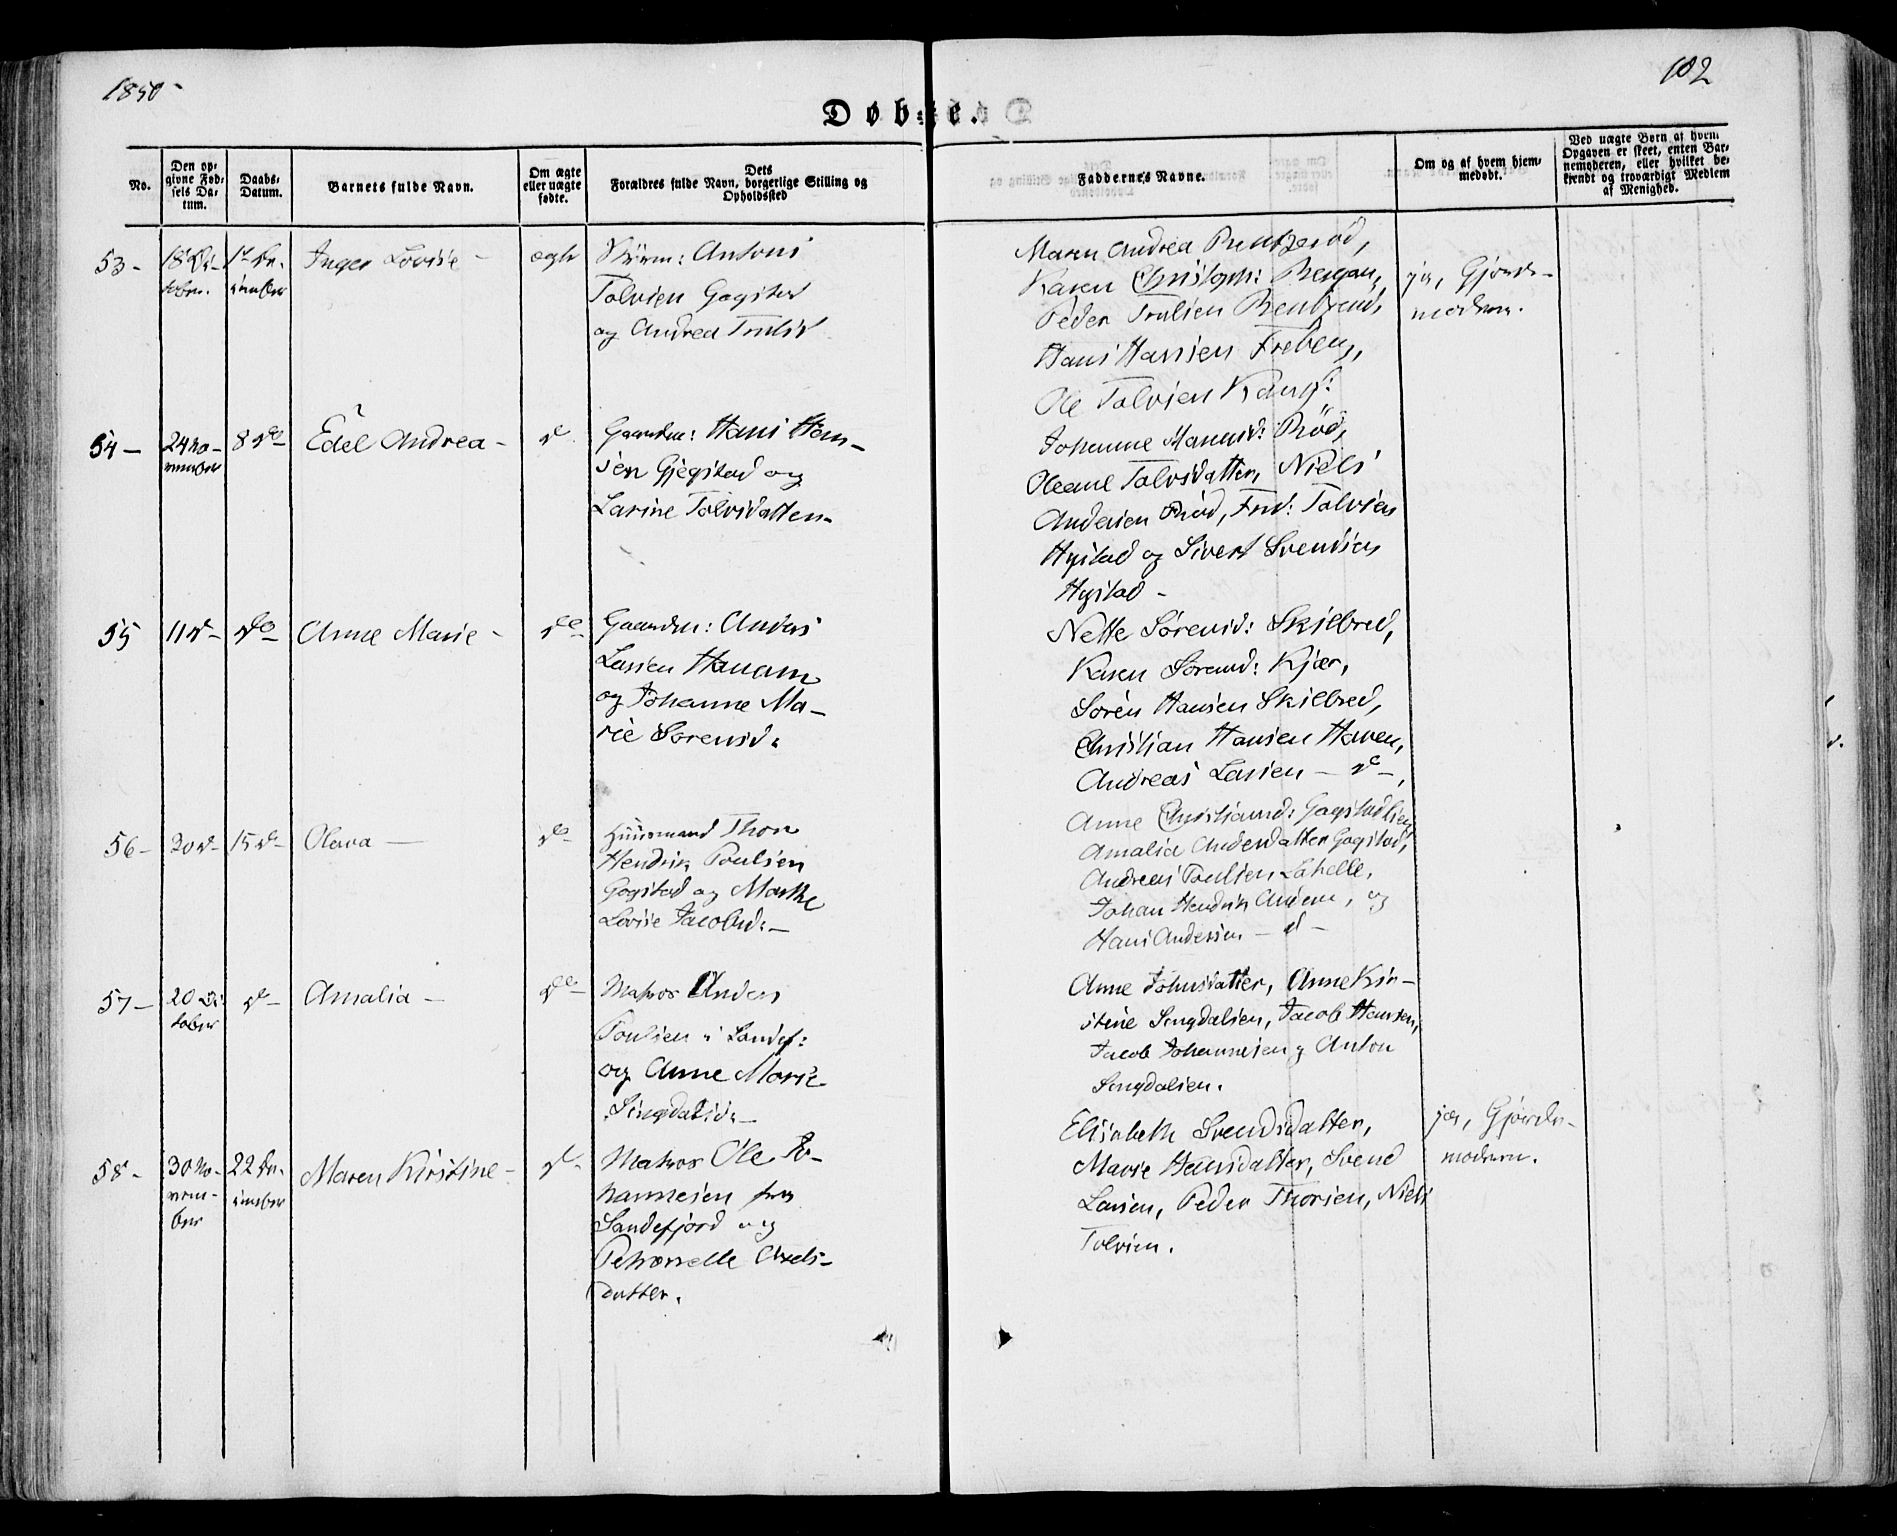 1850-
102
Døbte.
No.
Den op-
givne Fød-
sels Da-
tum.
Daabs-
Datum.
Barnets fulde Navn.
Om ægte
eller uægte
fødte.
Dets
Forældres fulde Navn, borgerlige Stilling og
Opholdssted
Faddernes Navne.
Om og af hvem hjem-
medøbt.
Ved uægte Børn af hvem
Opgaven er skeet, enten Bar-
nemoderen, eller hvilket be-
kjendt og troværdigt Medlem
af Menighed.
53-
18 Oc-
tober.
1ste De-
cember
Inger Lovise -
ægte
Antons
Tolvsen Gogstad
og Andrea Trulsd
Maren Andrea
Karen Christoph: Bergan,
Peder Trulsen
Hans Hansen Freberg,
Ole Tolvsen Kamf:
ja, Gjorde-
moderen.
54-
24 No-
vember
8 do-
Edel Andrea -
do
Gaardm: Hans Han-
sen Gjegstad og
Larine Tolvsdatter-
Johanne Rød,
Oleane Tolvsdatter, Niels
Andersen Rød, Fred: Tolvsen
Hystad og Sivert Svendsen
Hystad -
55
11 do-
do-
Anne Marie -
do-
Gaardm: Anders
Larsen
og Johanne Ma-
rie Sørensd:
Nette Sørensd: Skilbred,
Karen Sørensd: Kjær,
Søren Hansen Skilbred,
Christian Hansen Haven,
Andreas Larsen - do -,
56-
30 do-
15 do-
Olava -
do-
Huusmand Thor
Hendrik Poulsen
Gogstad og Marthe
Lovise Jacobsd:-
Anne Christiansd: Gogstadlien
Amalia Andersdatter Gogstad,
Andreas Poulsen
Johan Hendrik Anders, og
Hans Andersen - d -
57-
20 Oc-
tober
do-
Amalia -
do-
Matros Anders
Poulsen i Sandef:
og Anne Marie
Singdalsd:-
Anne Johnsdatter, Anne Kir-
stine Singdalsen, Jacob Hansen,
Jacob Johannesen, Anton
Singdalsen.
58-
30 No-
vem-
ber
22 De-
cember
Maren Kirstine -
do-
Matros Ole Jo-
hannesen fra
Sandefjord og
Petronelle Axels-
datter.
Elisabeth Svendsdatter,
Marie Hansdatter, Svend
Larsen, Peder Thorsen, Niels
Tolvsen.
ja, Gjorde-
moderen.